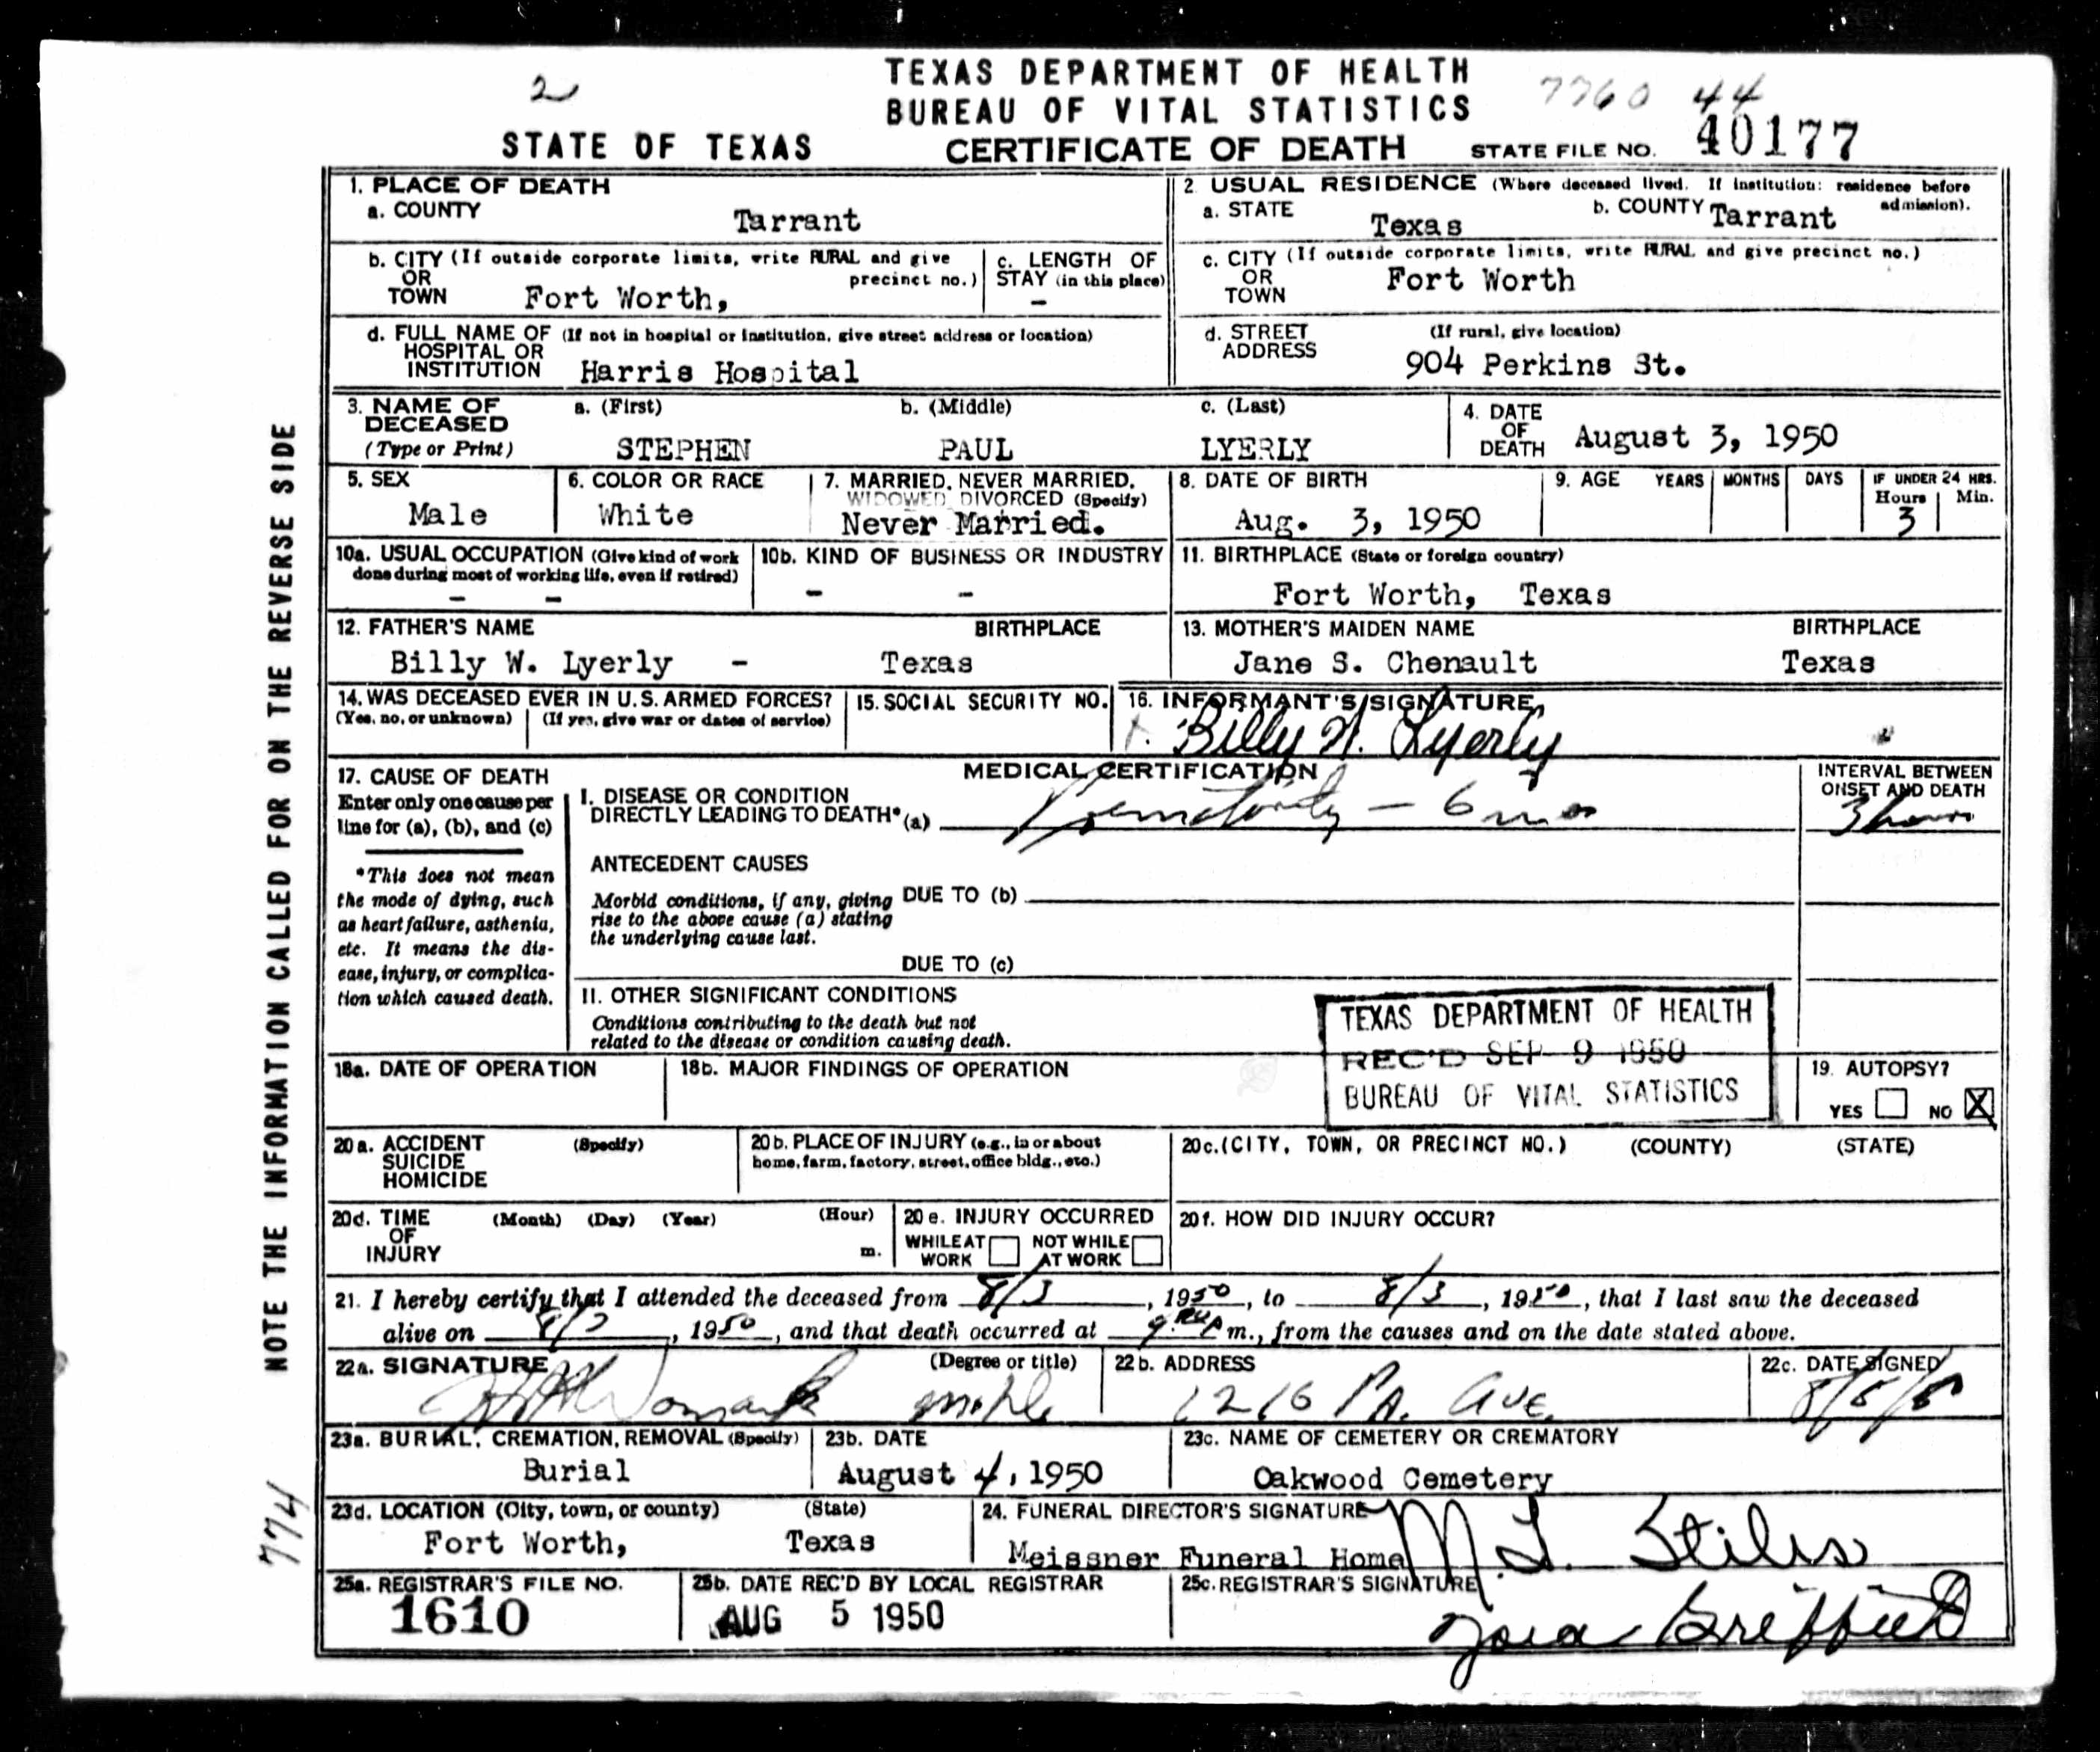 2
TEXAS DEPARTMENT OF HEALTH
BUREAU OF VITAL STATISTICS
7760 44
STATE OF TEXAS CERTIFICATE OF DEATH STATE FILE NO. 40177
NOTE THE INFORMATION CALLED FOR ON THE REVERSE SIDE
774
1. PLACE OF DEATH
a. COUNTY
Tarrant
2 USUAL RESIDENCE (Where deceased lived. If institution: residence before admission).
a. STATE Texas b. COUNTY Tarrant
b. CITY (If outside corporate limits, write RURAL and give
OR precinct no.)
TOWN Fort Worth,
c. LENGTH OF
STAY (in this place)
-
c. CITY (If outside corporate limits, write RURAL and give precinct no.)
OR
TOWN Fort Worth
d. FULL NAME OF (If not in hospital or institution, give street address or location)
HOSPITAL OR
INSTITUTION Harris Hospital
d. STREET (If rural, give location)
ADDRESS 904 Perkins St.
3. NAME OF a. (First) b. (Middle) c. (Last)
DECEASED
(Type or Print) STEPHEN PAUL LYERLY
4. DATE
OF
DEATH August 3, 1950
5. SEX
Male
6. COLOR OR RACE
White
7. MARRIED, NEVER MARRIED,
WIDOWED, DIVORCED (Specify)
Never Married.
8. DATE OF BIRTH
Aug. 3, 1950
9. AGE YEARS MONTHS DAYS IF UNDER 24 HRS.
Hours Min.
3
10a. USUAL OCCUPATION (Give kind of work
done during most of working life, even if retired)
- -
10b. KIND OF BUSINESS OR INDUSTRY
- -
11. BIRTHPLACE (State or foreign country)
Fort Worth, Texas
12. FATHER'S NAME BIRTHPLACE
Billy W. Lyerly - Texas
13. MOTHER'S MAIDEN NAME BIRTHPLACE
Jane S. Chenault Texas
14. WAS DECEASED EVER IN U.S. ARMED FORCES?
(Yes, no, or unknown) (If yes, give war or dates of service)
15. SOCIAL SECURITY NO.
16. INFORMANT'S SIGNATURE
Billy W. Lyerly
17. CAUSE OF DEATH
Enter only one cause per
line for (a), (b), and (c)
*This does not mean
the mode of dying, such
as heart failure, asthenia,
etc. It means the dis-
ease, injury, or complica-
tion which caused death.
MEDICAL CERTIFICATION
I. DISEASE OR CONDITION
DIRECTLY LEADING TO DEATH* (a) Prematurity - 6 mos
INTERVAL BETWEEN
ONSET AND DEATH
3 hours
ANTECEDENT CAUSES
Morbid conditions, if any, giving DUE TO (b)
rise to the above cause (a) stating
the underlying cause last.
DUE TO (c)
II. OTHER SIGNIFICANT CONDITIONS
Conditions contributing to the death but not
related to the disease or condition causing death.
TEXAS DEPARTMENT OF HEALTH
REC'D SEP 9 1950
BUREAU OF VITAL STATISTICS
18a. DATE OF OPERATION
18b. MAJOR FINDINGS OF OPERATION
19. AUTOPSY?
YES NO X
20a. ACCIDENT (Specify)
SUICIDE
HOMICIDE
20b. PLACE OF INJURY (e.g., in or about
home, farm, factory, street, office bldg., etc.)
20c. (CITY, TOWN, OR PRECINCT NO.) (COUNTY) (STATE)
20d. TIME (Month) (Day) (Year) (Hour)
OF
INJURY m.
20e. INJURY OCCURRED
WHILE AT NOT WHILE
WORK AT WORK
20f. HOW DID INJURY OCCUR?
21. I hereby certify that I attended the deceased from 8/3, 1950, to 8/3, 1950, that I last saw the deceased
alive on 8/3, 1950, and that death occurred at m., from the causes and on the date stated above.
22a. SIGNATURE (Degree or title)
Womack
22b. ADDRESS
1216 Pa. Ave.
22c. DATE SIGNED
23a. BURIAL, CREMATION, REMOVAL (Specify)
Burial
23b. DATE
August 4, 1950
23c. NAME OF CEMETERY OR CREMATORY
Oakwood Cemetery
23d. LOCATION (City, town, or county) (State)
Fort Worth, Texas
24. FUNERAL DIRECTOR'S SIGNATURE
Meissner Funeral Home M. L. Stiles
25a. REGISTRAR'S FILE NO.
1610
25b. DATE REC'D BY LOCAL REGISTRAR
AUG 5 1950
25c. REGISTRAR'S SIGNATURE